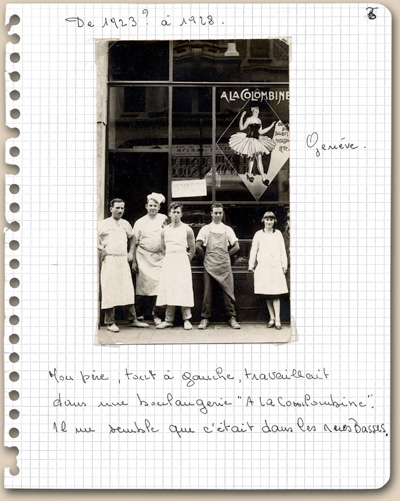 De 1923? à 1928.
6
A LA COLOMBINE
Genève.
Mon père, tout à gauche, travaillait
dans une boulangerie "A la Colombine".
Il me semble que c'était dans les rues Basses.